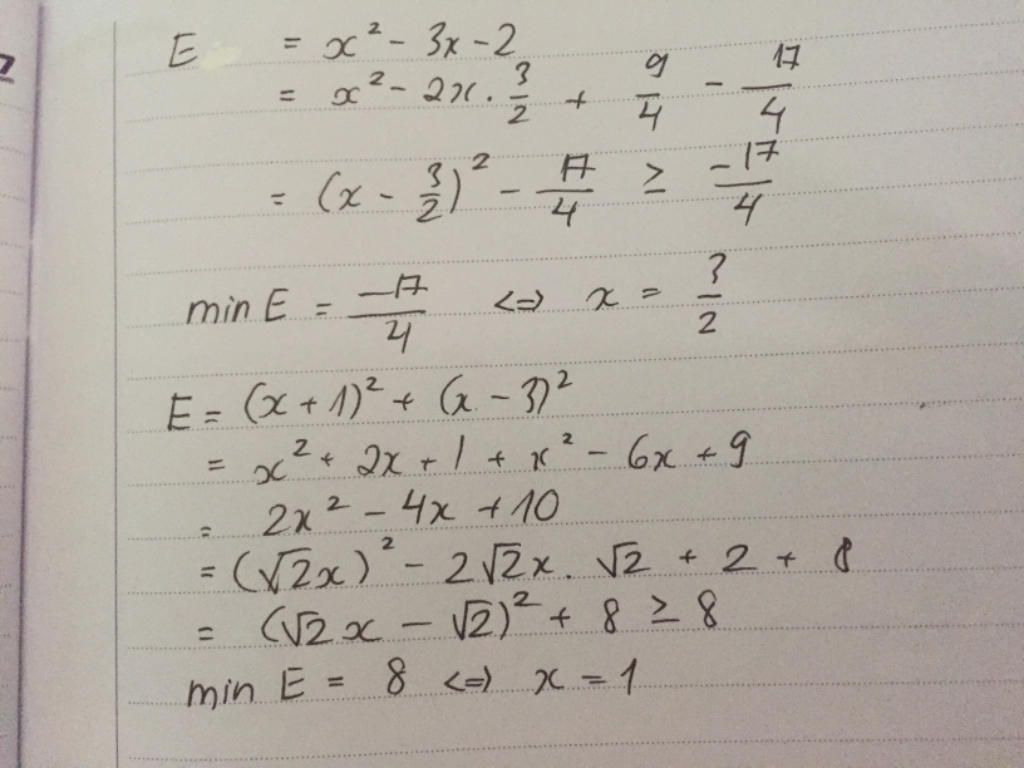 E = x² - 3x - 2
= x² - 2x . 3/2 + 9/4 - 17/4
= (x - 3/2)² - 17/4 ≥ -17/4
min E = -17/4 <=> x = 3/2
E = (x + 1)² + (x - 3)²
= x² + 2x + 1 + x² - 6x + 9
= 2x² - 4x + 10
= (√2x)² - 2√2x . √2 + 2 + 8
= (√2x - √2)² + 8 ≥ 8
min E = 8 <=> x = 1